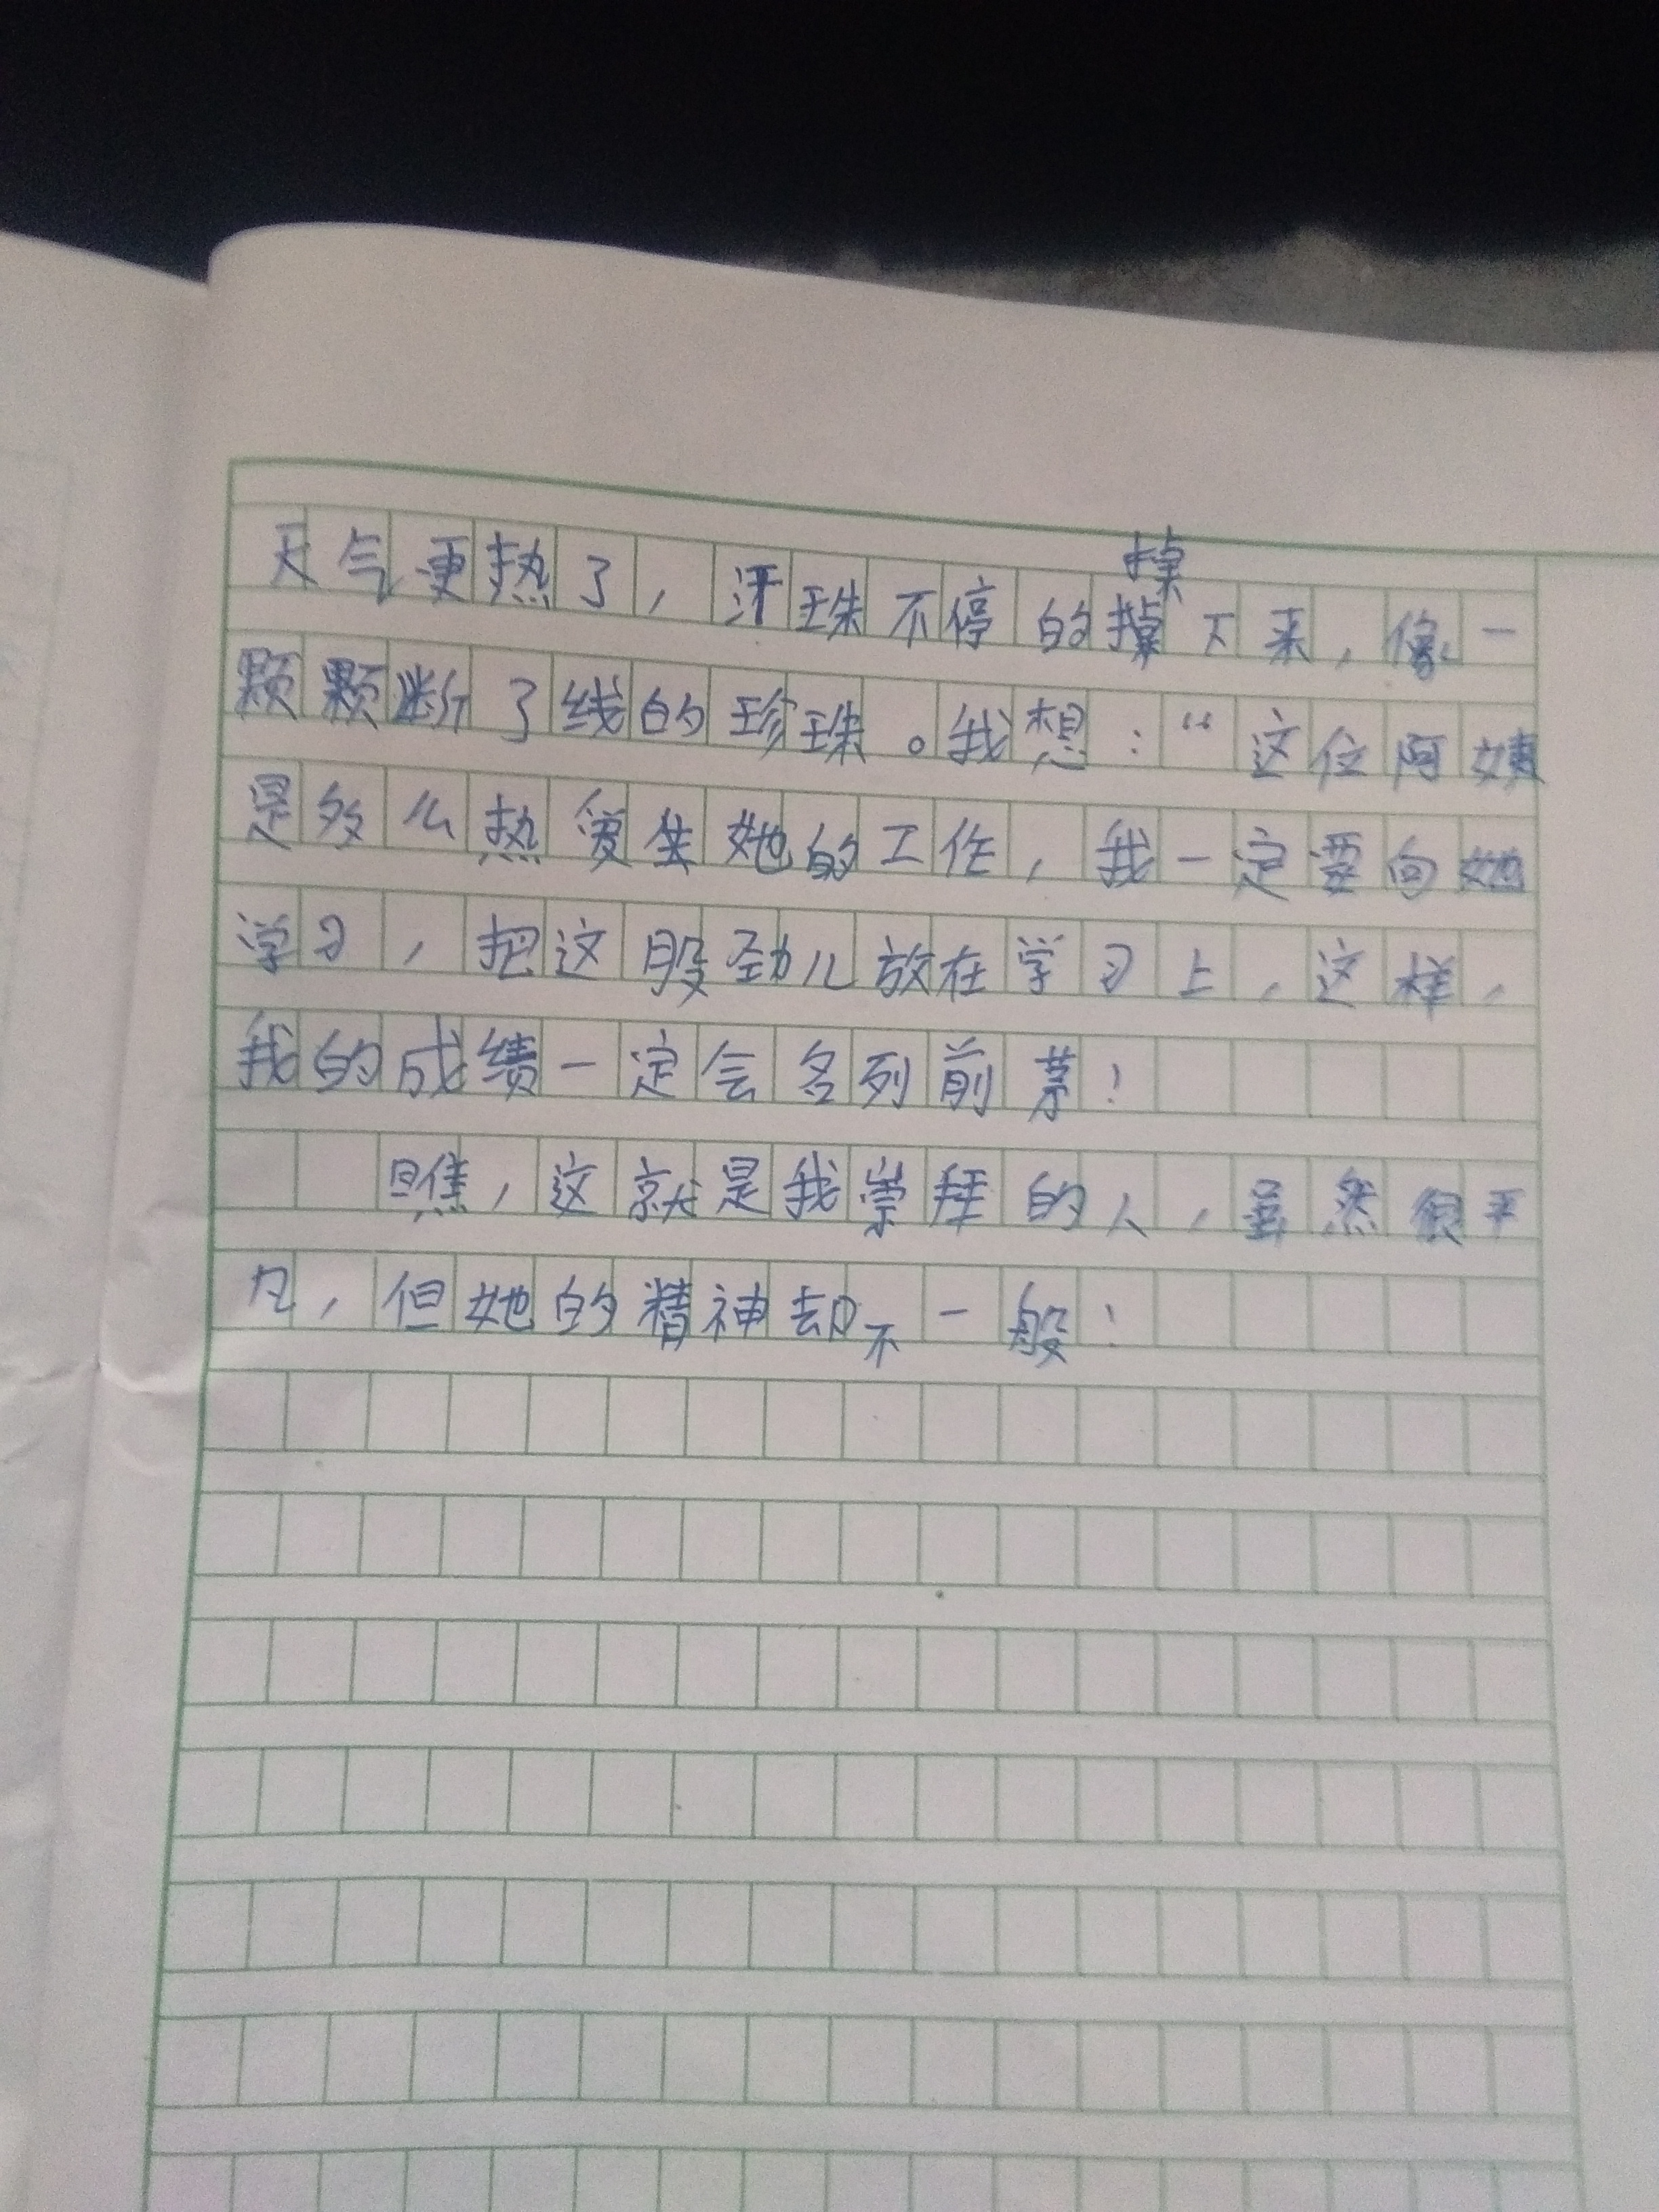 掉
天气更热了，汗珠不停的掉下来，像一
颗颗断了线的珍珠。我想：“这位阿姨
是多么热爱生她的工作，我一定要向她
学习，把这股劲儿放在学习上，这样，
我的成绩一定会名列前茅！
瞧，这就是我崇拜的人，虽然很平
凡，但她的精神却不一般！